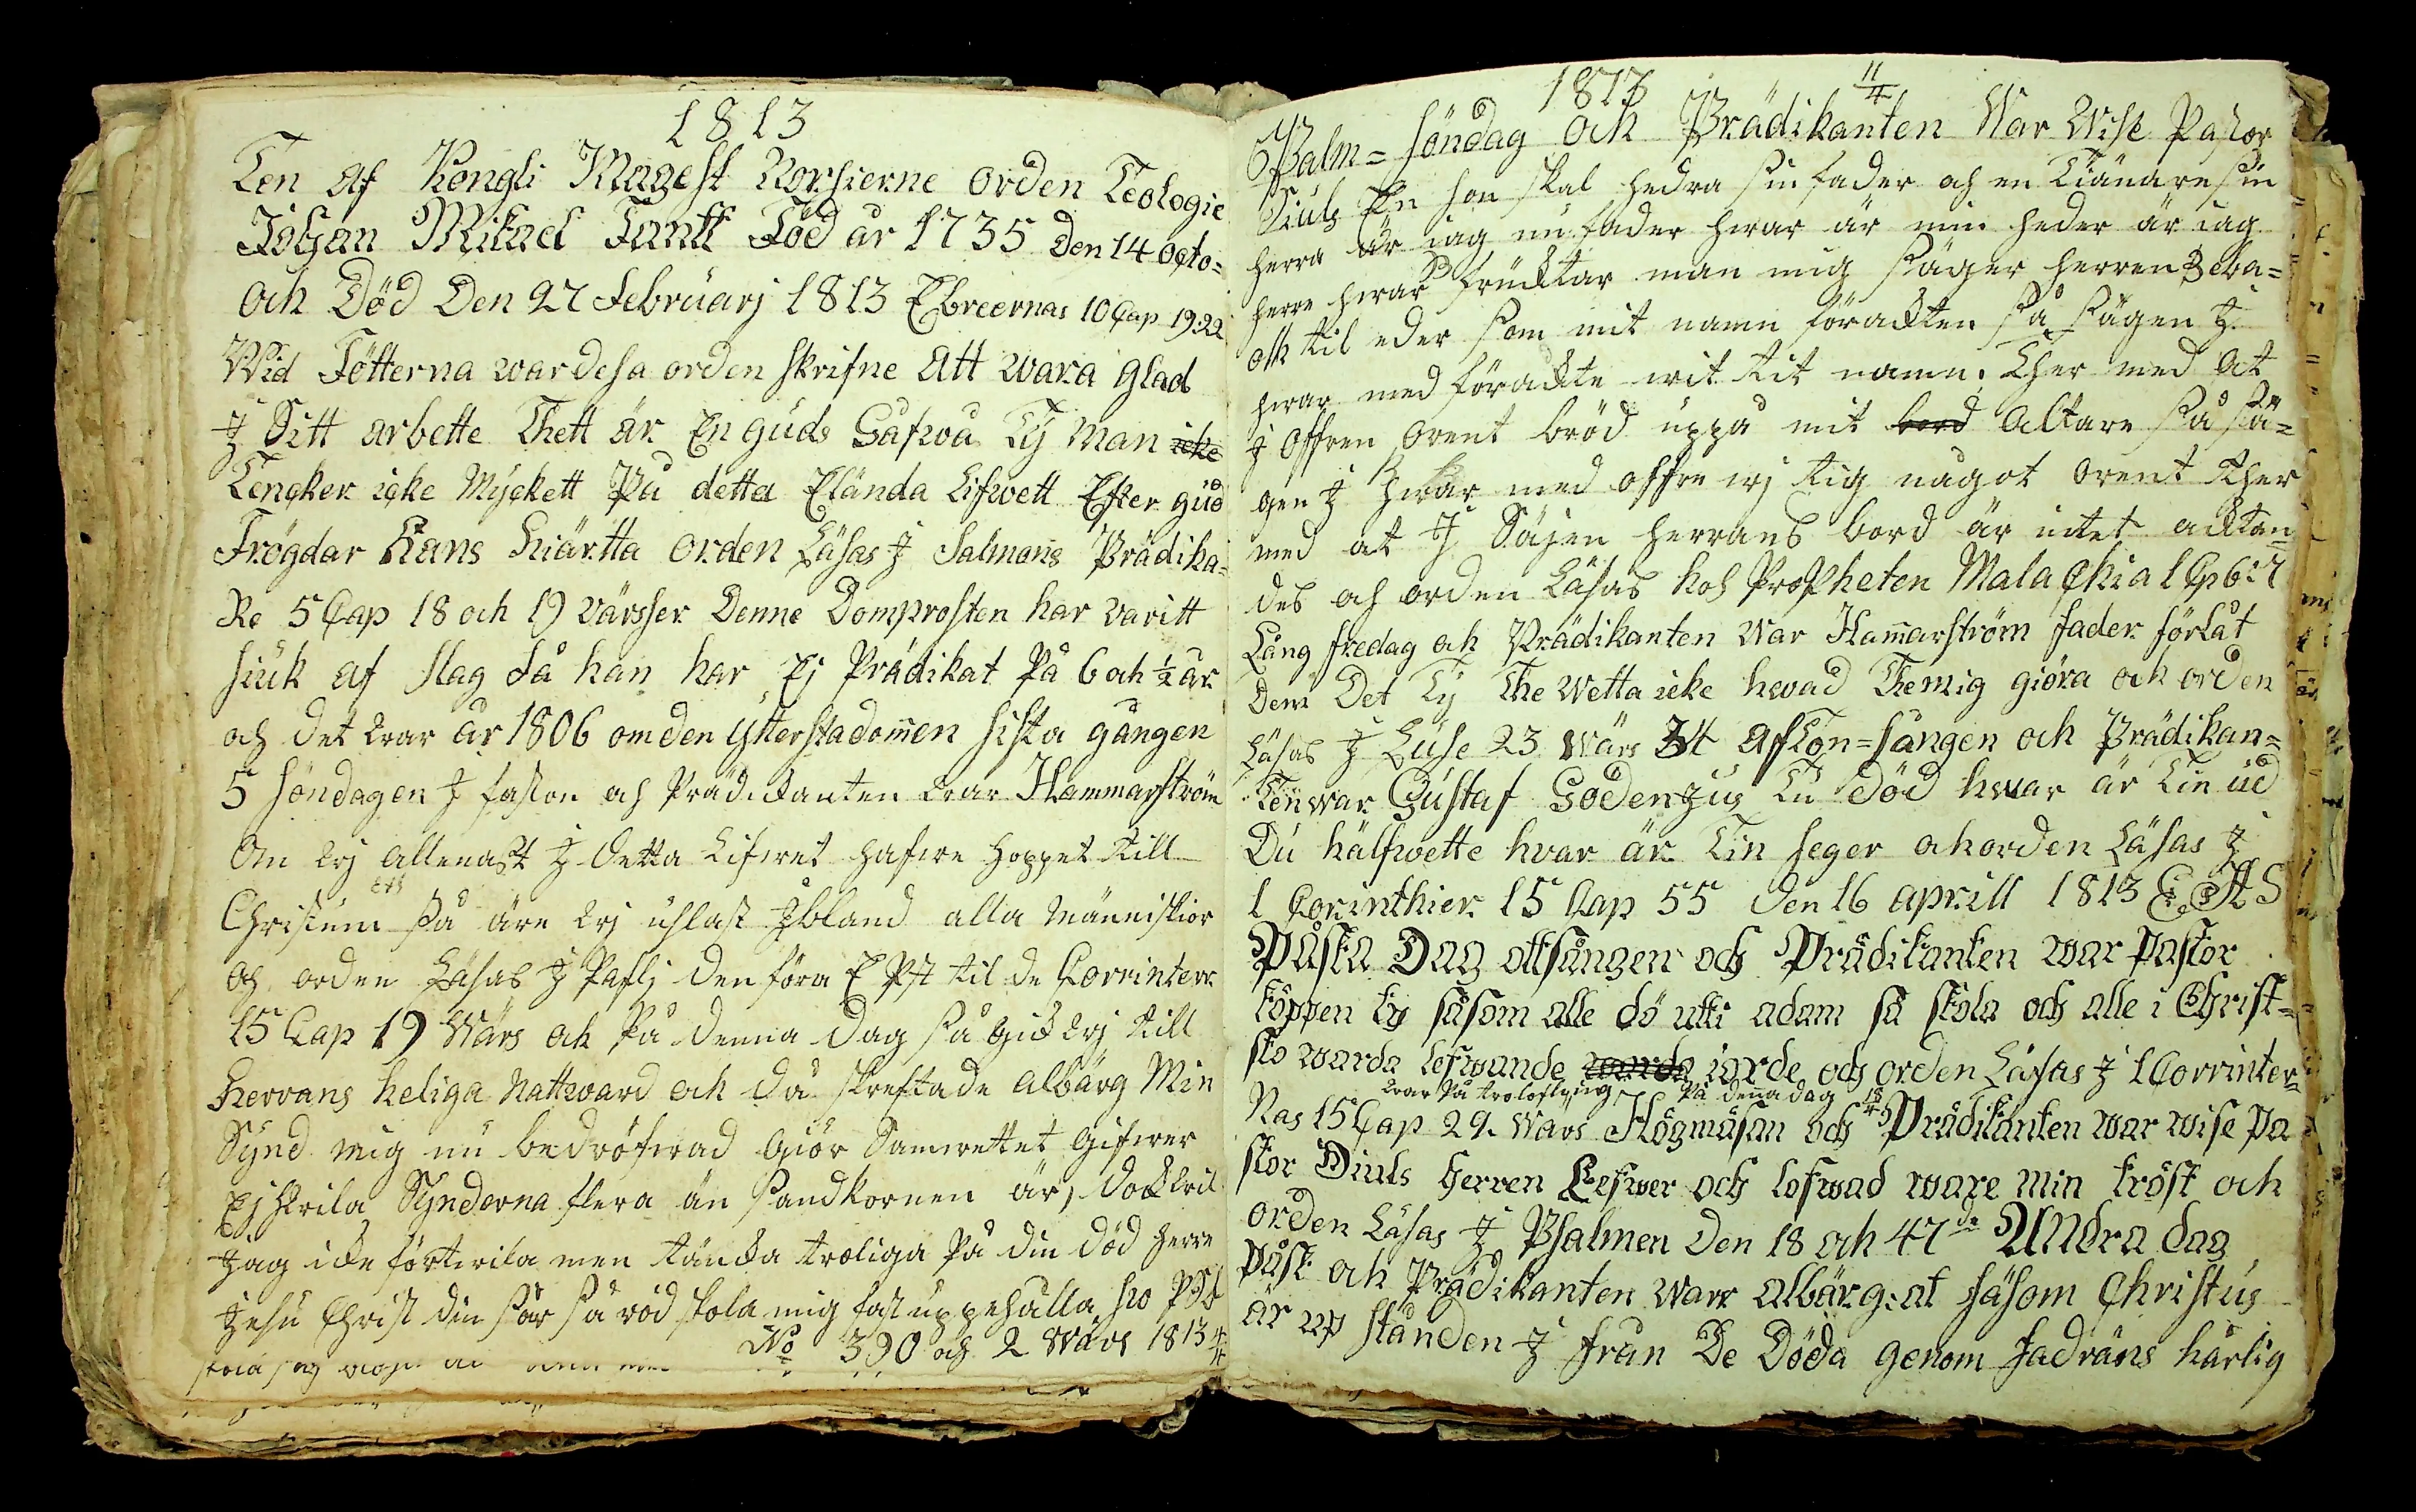 1813
Ten af Kongli Magest Norsierne orden Teologie
Johan Mikael Fantt Föd år 1735 Den 14 Octo=
Och Död Den 27 Februarj 1813 Ebreernas 10 Cap 19:22
Wid Fötterna war desa orden skrifne Att wara glad
J Sitt arbette Thett är En guds Gåfwa Ty Man icke
Tencker icke Myckett På detta Elända Lifwett Efter gud
Frögdar Hans Hiärtta orden Läsas J Salmons Prädika=
Re 5 Cap 18 och 19 värsser Denne Domprosten har varitt
siuk af slag så han har Ej Prädikat På 6 och ½ år
och det war år 1806 om den ytterstadomen sista gången
5 Söndagen J faston och Prädickanten war Hammarström
Om wj allenast J detta Lifwet hafwe hoppet till
Christum så äre wj uslast Jbland alla Människior
och orden Läsas J Pafli den föra E Pst til de Corrinterr
15 Cap 19 Wärs ock På denna Dag så gick wj till
Herrans heliga Nattward och då skreftade albärg Min
Synd mig nu bedröfwad Giör Samwettet Gifwer
Ej Hwila Synderna flera än Sandkornen är, dock wil
Jag icke förtwila men tänka troliga På din död Herre
Jesu Christ din sår så röd skola mig fast uppehålla
No 390 och 2 Wärs 1813 4/4
1813 11/4
Palm=söndag och Prädikanten War Wise Pastor
Diuls En son skal hedra sin fader och en Tiänare sin
herra är iag nu fader hwar är min heder är iag
herre hwar fruktar man mig säger herren Zeba=
oth til eder som mit namn förackten så sägen J
hwar med förackte wit tit namn. Ther med At
J offren Orent bröd uppå mit bord Altare så sä=
gen J Hwar med offre wj tig något Orent Ther
med at J Säjen herrans bord är intet acktan=
des och orden Läsas hos Propheten Malachia 1 Cp 6:7
Långfredag och Prädikanten War Hamarström Fader förlåt
Dem Det Ty The wetta icke hwad The mig giöra och orden
Läsas J Luse 23 Wärs 34 afTon=sången och Prädikan=
Ten war Gustaf Godenzius Tu död hwar är Tin ud
Du hälfwette hvar är Tin seger och orden Läsas J
1 Corinthier 15 Cap 55 Den 16 aprill 1813 E A S
Påska Dag ottsången och Prädikanten war pastor
Köppen ty såsom alle dö utti adam så skola och alle i Christ=
sto warda lefwande warda iorde och orden Läsas J 1 Corrinter=
war På trolofning På denna dag 18/4
Nas 15 Cap 29. Wärs Högmäsan och Prädikanten war wise pa
stor Diuls Herren Lefwer och lofwad ware min tröst och
orden Läsas J Psalmen Den 18 och 47de Andra dag
påsk och Prädikanten warr albärg: at såsom Christus
är up stånden J från De Döda genom fadräns härlig